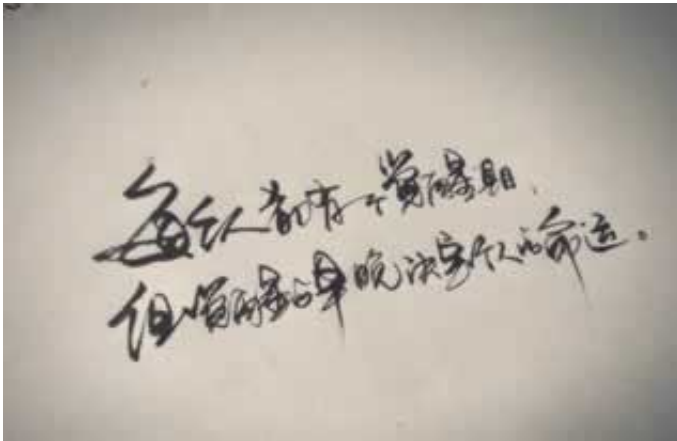 每个人都有一个觉醒期,
但觉醒的早晚决定个人的命运。